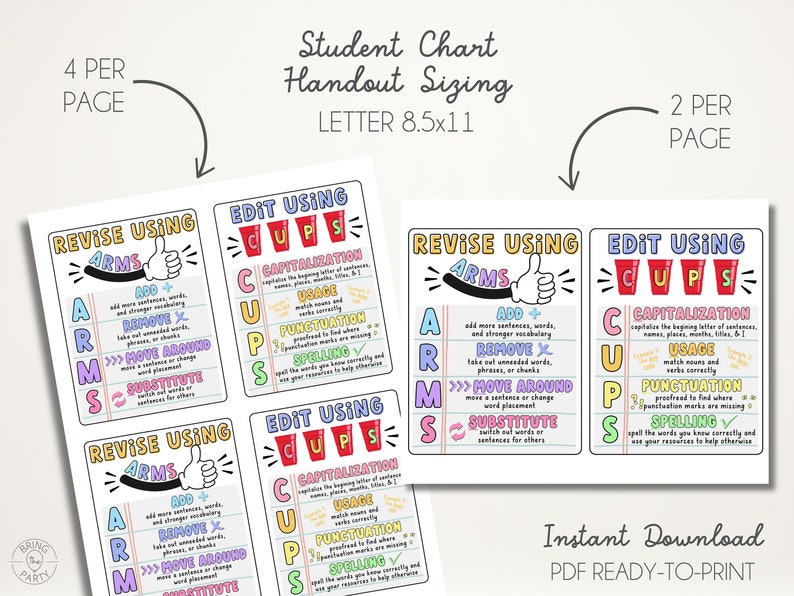 Student Chart
Handout Sizing
LETTER 8.5x11
4 PER
PAGE
2 PER
PAGE
REVISE USING
ARMS
A
ADD +
add more sentences, words,
and stronger vocabulary
R
REMOVE X
take out unneeded words,
phrases, or chunks
M
>>> MOVE AROUND
move a sentence or change
word placement
S
SUBSTITUTE
switch out words or
sentences for others
EDIT USING
CUPS
C
CAPITALIZATION
capitalize the begining letter of sentences,
names, places, months, titles, & I
U
USAGE
match nouns and
verbs correctly
P
PUNCTUATION
proofread to find where
punctuation marks are missing
S
SPELLING ✓
spell the words you know correctly and
use your resources to help otherwise
REVISE USING
ARMS
A
ADD +
add more sentences, words,
and stronger vocabulary
R
REMOVE
take out unneeded words,
phrases, or chunks
M
MOVE AROUND
move a sentence or change
word placement
EDIT USING
CUPS
C
CAPITALIZATION
capitalize the begining letter of sentences,
names, places, months, titles, & I
U
USAGE
match nouns and
verbs correctly
P
PUNCTUATION
proofread to find where
punctuation marks are missing
S
SPELLING ✓
spell the words you know correctly and
use your resources to help otherwise
REVISE USING
ARMS
A
ADD +
add more sentences, words,
and stronger vocabulary
R
REMOVE X
take out unneeded words,
phrases, or chunks
M
>>> MOVE AROUND
move a sentence or change
word placement
S
SUBSTITUTE
switch out words or
sentences for others
EDIT USING
CUPS
C
CAPITALIZATION
capitalize the begining letter of sentences,
names, places, months, titles, & I
U
USAGE
match nouns and
verbs correctly
P
PUNCTUATION
proofread to find where
?! punctuation marks are missing
S
SPELLING ✓
spell the words you know correctly and
use your resources to help otherwise
Instant Download
PDF READY-TO-PRINT
BRING
The
PARTY